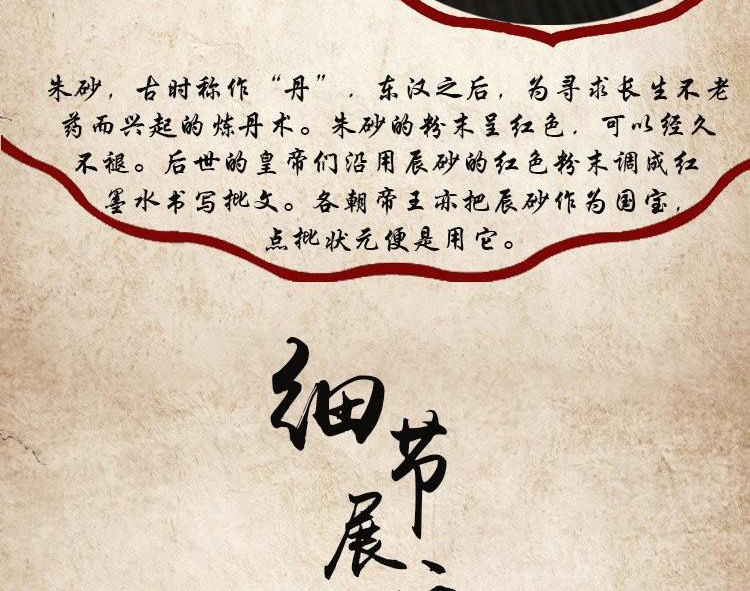 朱砂，古时称作“丹”．东汉之后，为寻求长生不老
药而兴起的炼丹术。朱砂的粉末呈红色．可以经久
不褪。后世的皇帝们沿用辰砂的红色粉末调成红
墨水书写批文。各朝帝王亦把辰砂作为国宝，
点批状元便是用它。
细
节
展